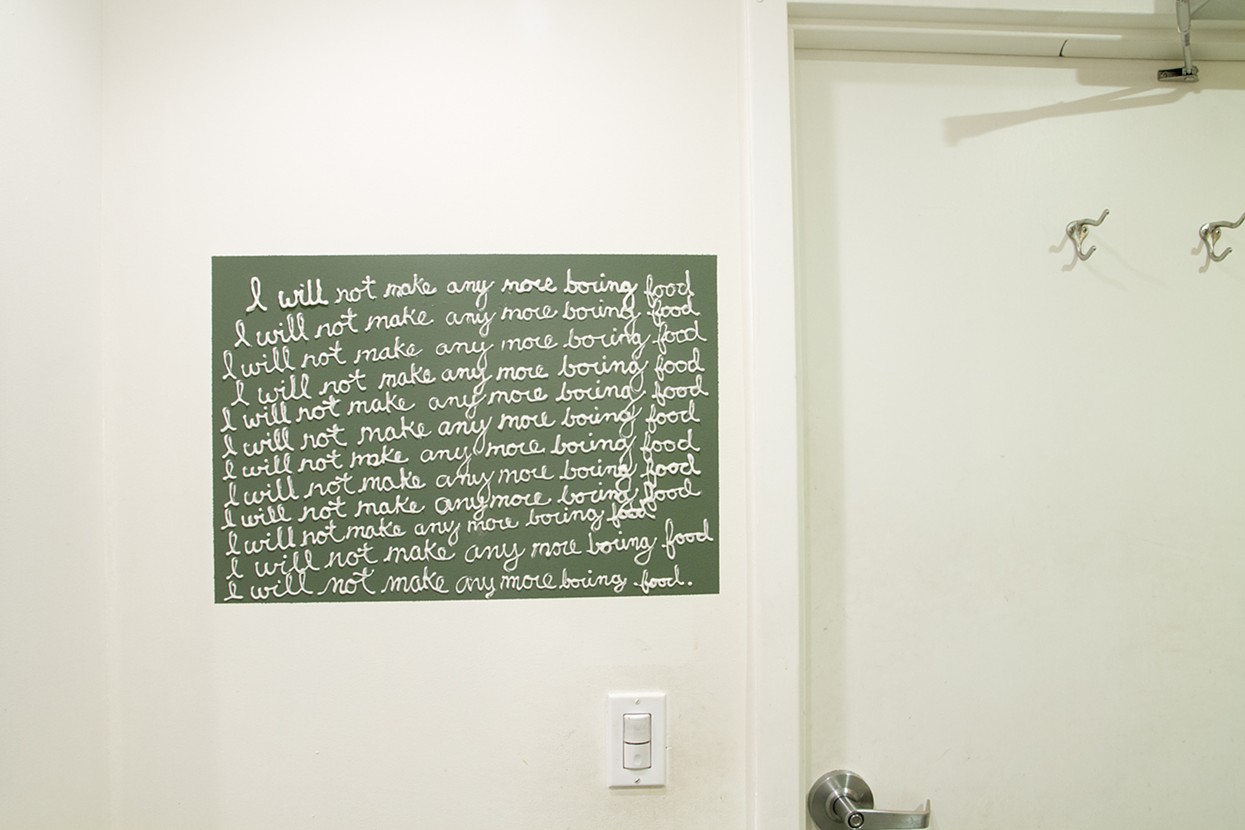 I will not make any more boring food
I will not make any more boring food
I will not make any more boring food
I will not make any more boring food
I will not make any more boring food
I will not make any more boring food
I will not make any more boring food
I will not make any more boring food
I will not make any more boring food
I will not make any more boring food
I will not make any more boring food
I will not make any more boring food.